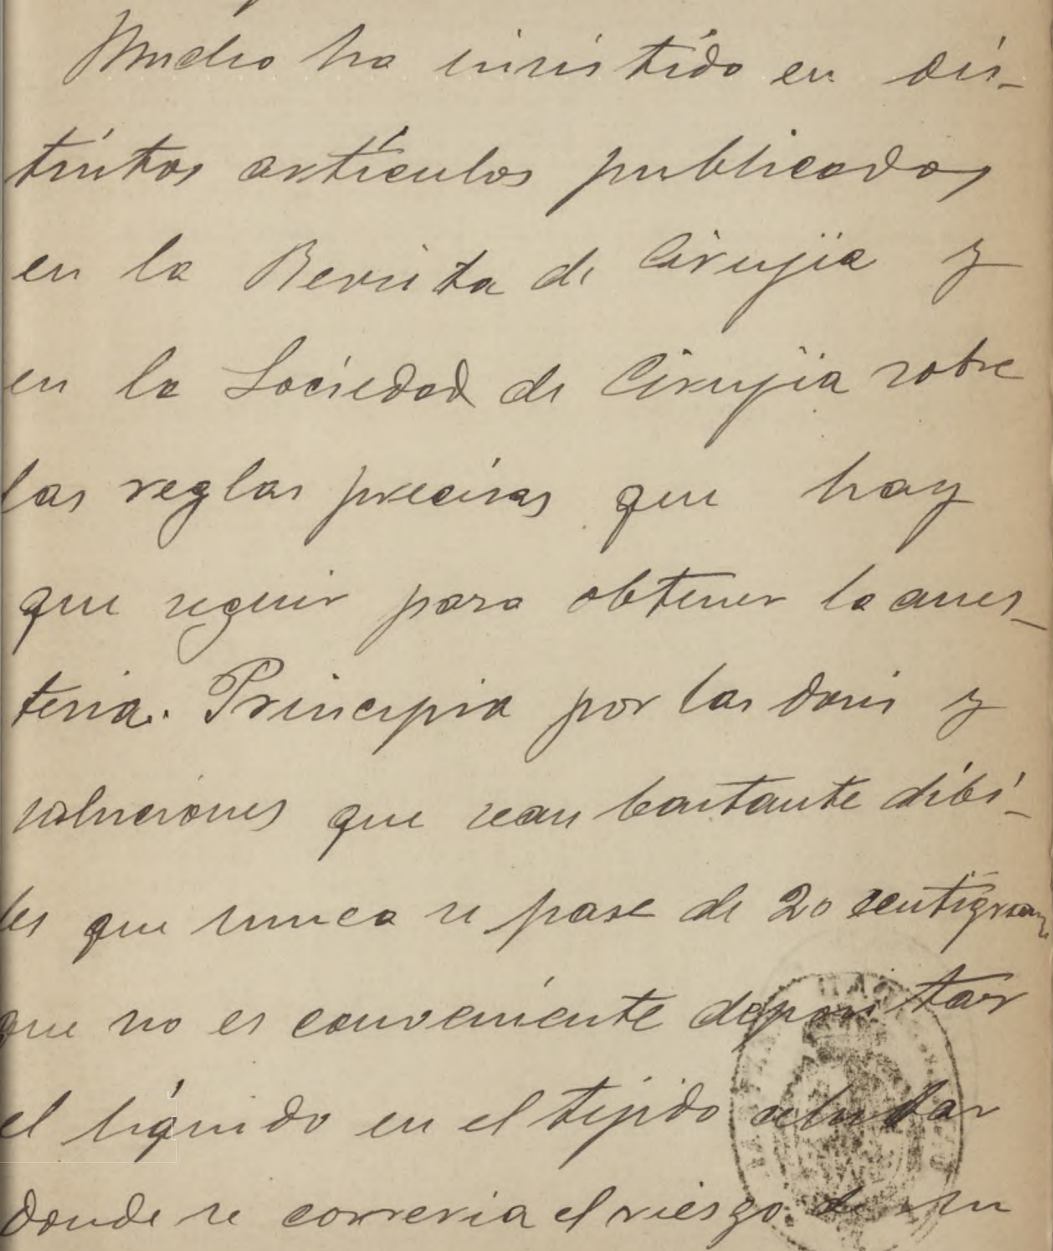 Mucho ha insistido en dis-
tintos artículos publicados
en la Revista de Cirujia y
en la Sociedad de Cirujia sobre
las reglas precisas que hay
que seguir para obtener la anes-
tesia. Principia por las dosis y
soluciones que sean bastante débi-
les que nunca se pase de 20 centigram
que no es conveniente depositar
el líquido en el tejido celular
donde se correria el riesgo de un